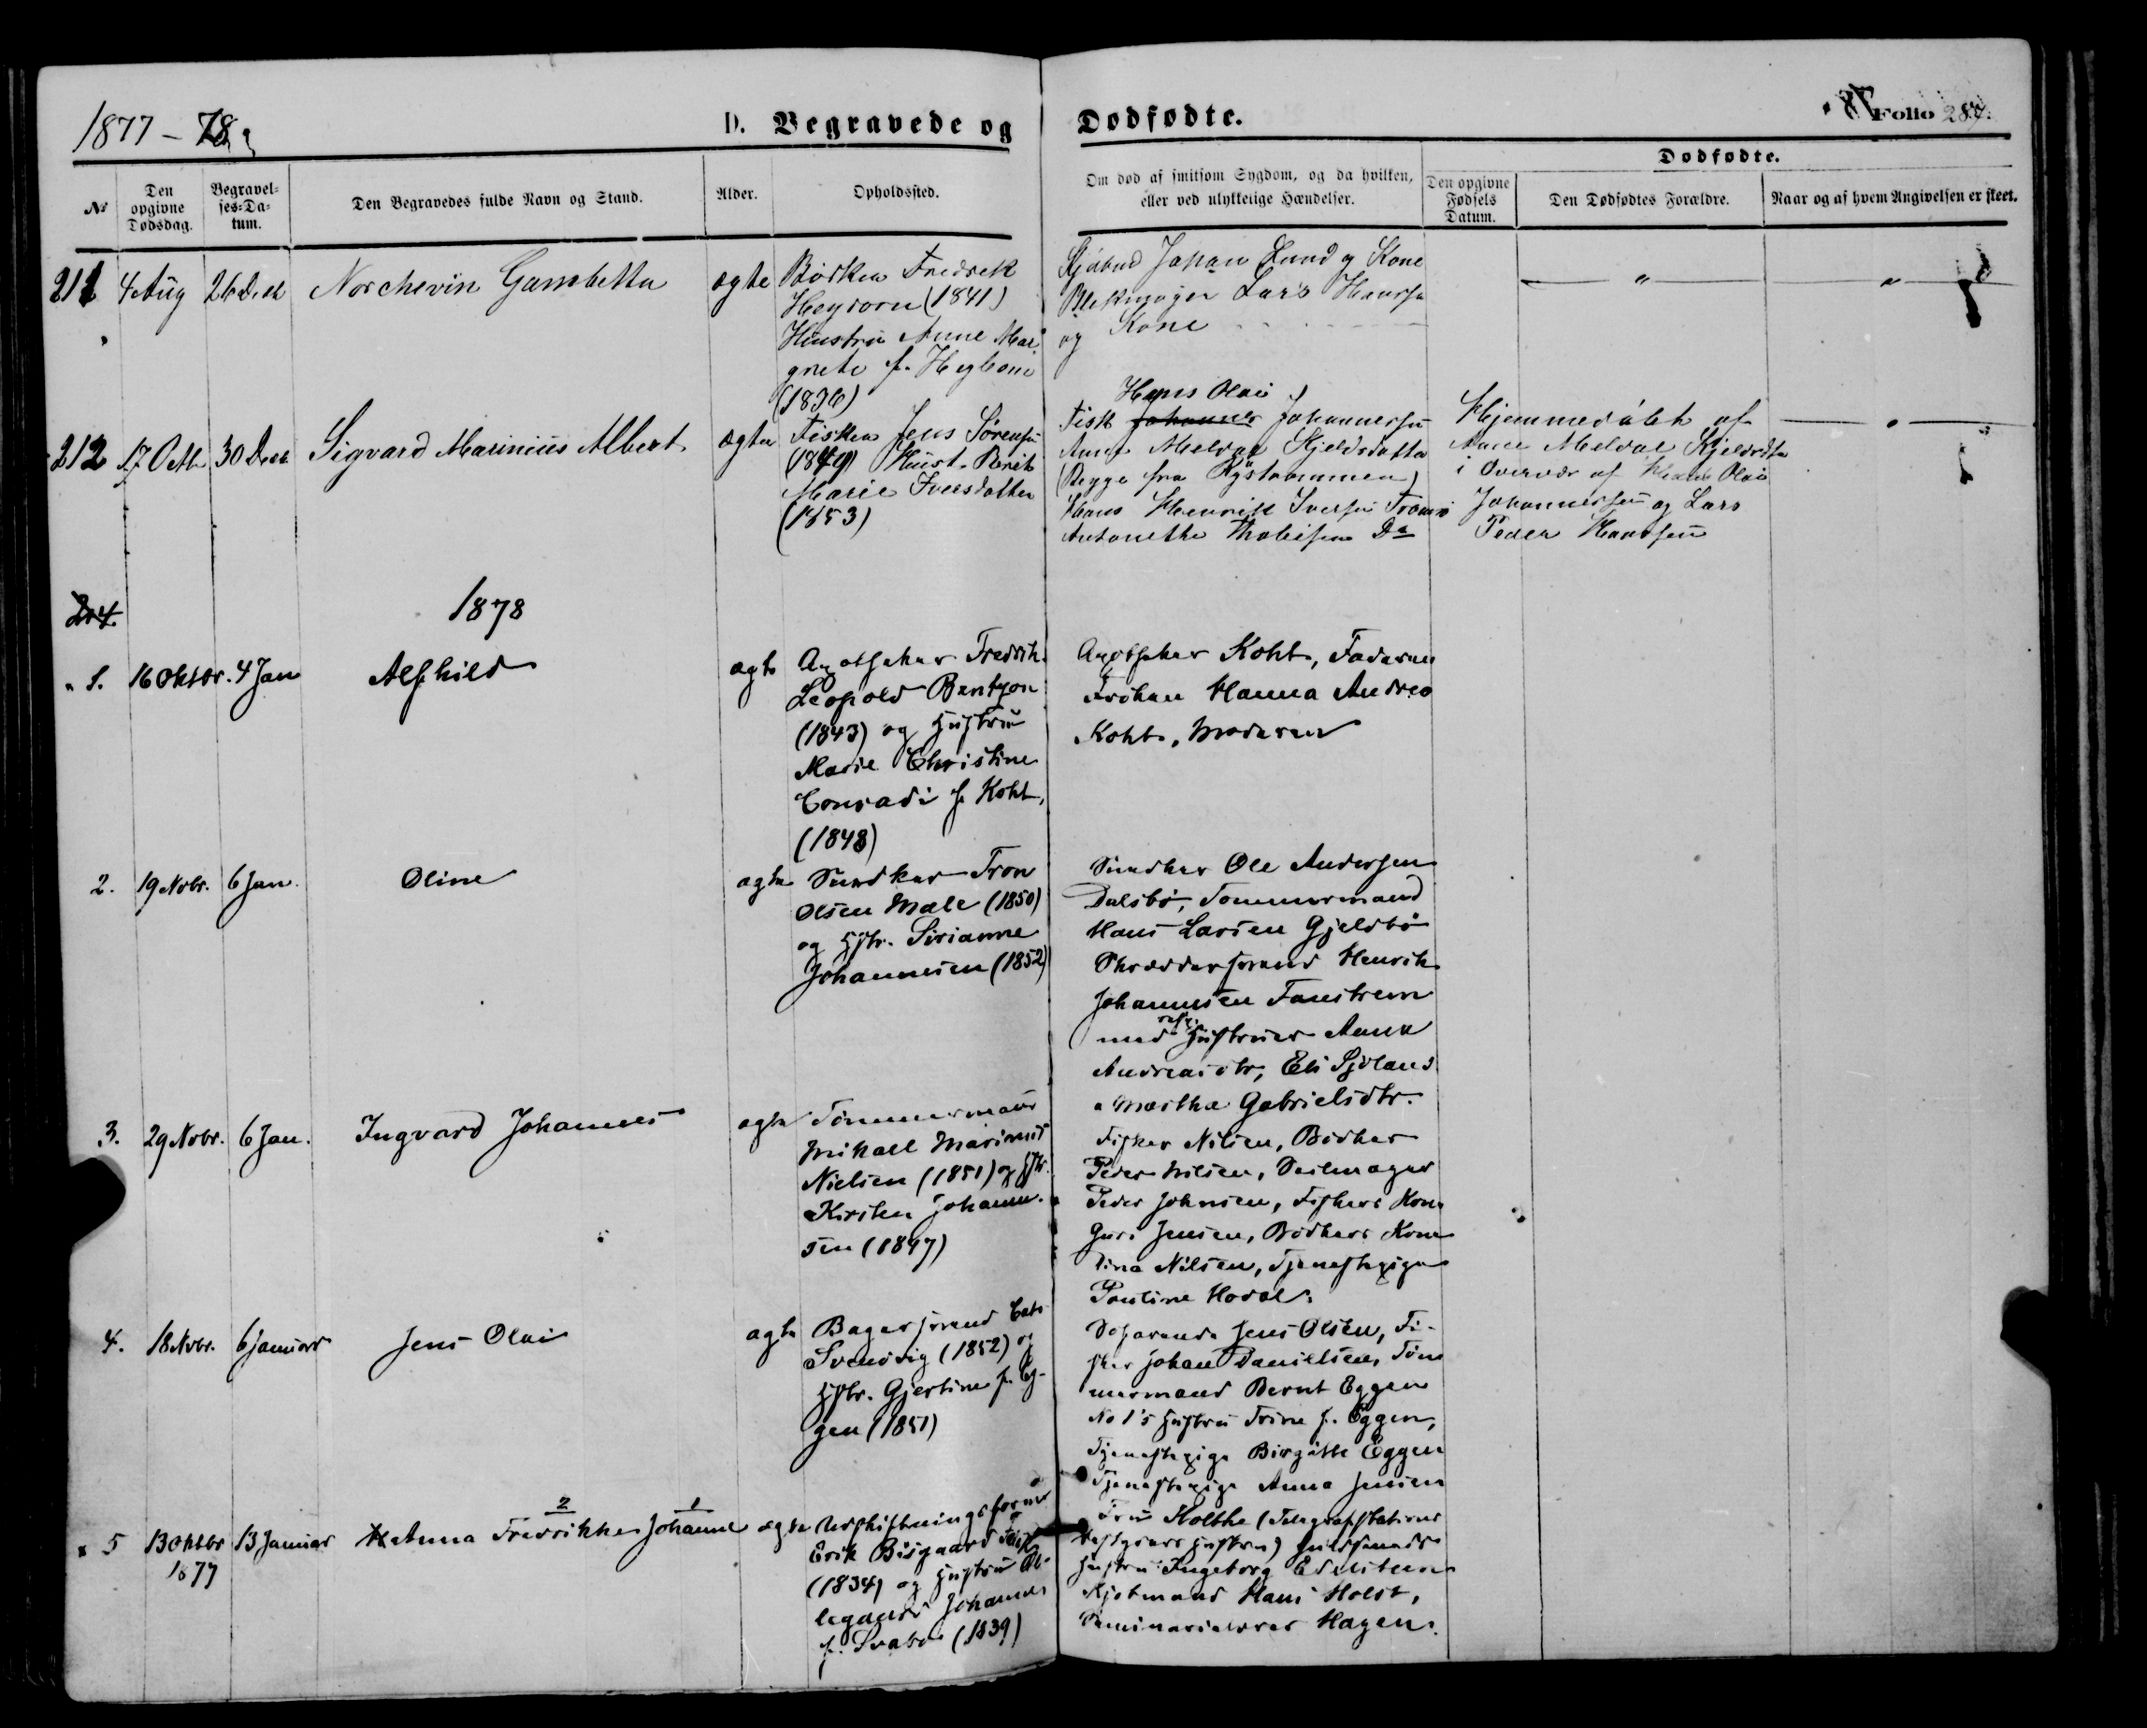 1877 - 78
D. Begravede og
Dødfødte.
Folio 287.
№
Den opgivne Dødsdag.
Begravelses-Datum.
Den Begravedes fulde Navn og Stand.
Alder.
Opholdssted.
Om død af smitsom Sygdom, og da hvilken,
eller ved ulykkelige Hændelser.
Den opgivne Fødsels Datum.
Dødfødte.
Den Dødfødtes Forældre.
Naar og af hvem Angivelsen er skeet.
211 4 Aug 26 Dec Norchevin Gambetta ægte
Bødker Fredrek
Heydorn (1841)
Hustru Anne Mar
grete f. Heglsone
(1836)
Johan Lund og Kone
Blikmager Lars Hansen
og Kone
212 17 Octb 30 Dec Sigvard Marinius Albert ægte
Fisker Jens Sørensen
(1849) Hust. Berit
Marie Iversdatter
(1853)
Hans Olai
Fisk Johannes Johannessen
Anne Meldal Kjeldsdatter
(Begge fra Bystrømmen)
Hans Henrik Iversen Tromsø
Antonette Thobisen Do
Hjemmedøbt af
Anne Meldal Kjeldsdtr
i Overvær af Hans Olai
Johannessen og Lars
Peder Hansen
214.
1878
1. 16 Oktbr. 4 Jan Alfhild ægte
Apotheker Fredrik
Leopold Bentzon
(1843) og Hustru
Marie Christine
Conradi f. Koht.
(1848)
Apotheker Koht, Faderen
Frøken Hanna Andrea
Koht, Moderen
2. 19 Novbr. 6 Jan. Oline ægte
Snedker Tron
Olsen Mæle (1850)
og Hstr. Sirianne
Johannesen (1852)
Snedker Ole Andersen
Dalsbø, Tømmermand
Hans Larsen Gjeldbø
Skræddersvend Henrik
Johannesen Fanestrem
med resp. Hustruer Anna
Andreasdtr, Eli Sjøland
Martha Gabrielsdtr.
3. 29 Novbr. 6 Jan. Ingvard Johannes ægte
Tømmermand
Mikael Marinus
Nielsen (1851) og Hstr.
Kirsten Johanne-
sen (1847)
Fisker Nilsen, Bødker
Peder Nilsen, Seilmager
Peder Johnsen, Fiskers Kone
Guri Jensen, Bødkers Kone
Lina Nilsen, Tjenestepige
Pauline Hoval.
4. 18 Novbr. 6 Januar Jens Olai ægte
Bagersvend
Svendsig (1852) og
Hstr. Gjertine f. Eg-
gen (1851)
Jens Olsen, Fi-
sker Johan Danielsen, Tøm
mermand Bernt Eggen
No 1's Hustru Trine f. Eggen,
Tjenestepige Birgitte Eggen
Tjenestepige Anna Jensen
5 13 Oktbr 1877 13 Januar Anna Fredrikke Johanne ægte
2 1
Udskiftningsformand
Erik Bisgaard
(1834) og Hustru
Johanne
f. Svabo (1839)
Fru Holthe (Telegrafstations
bestyrers Hustru)
Hustru Ingeborg Edelsteen
Kjøbmand Hans Holst,
Seminarielærer Hagen.